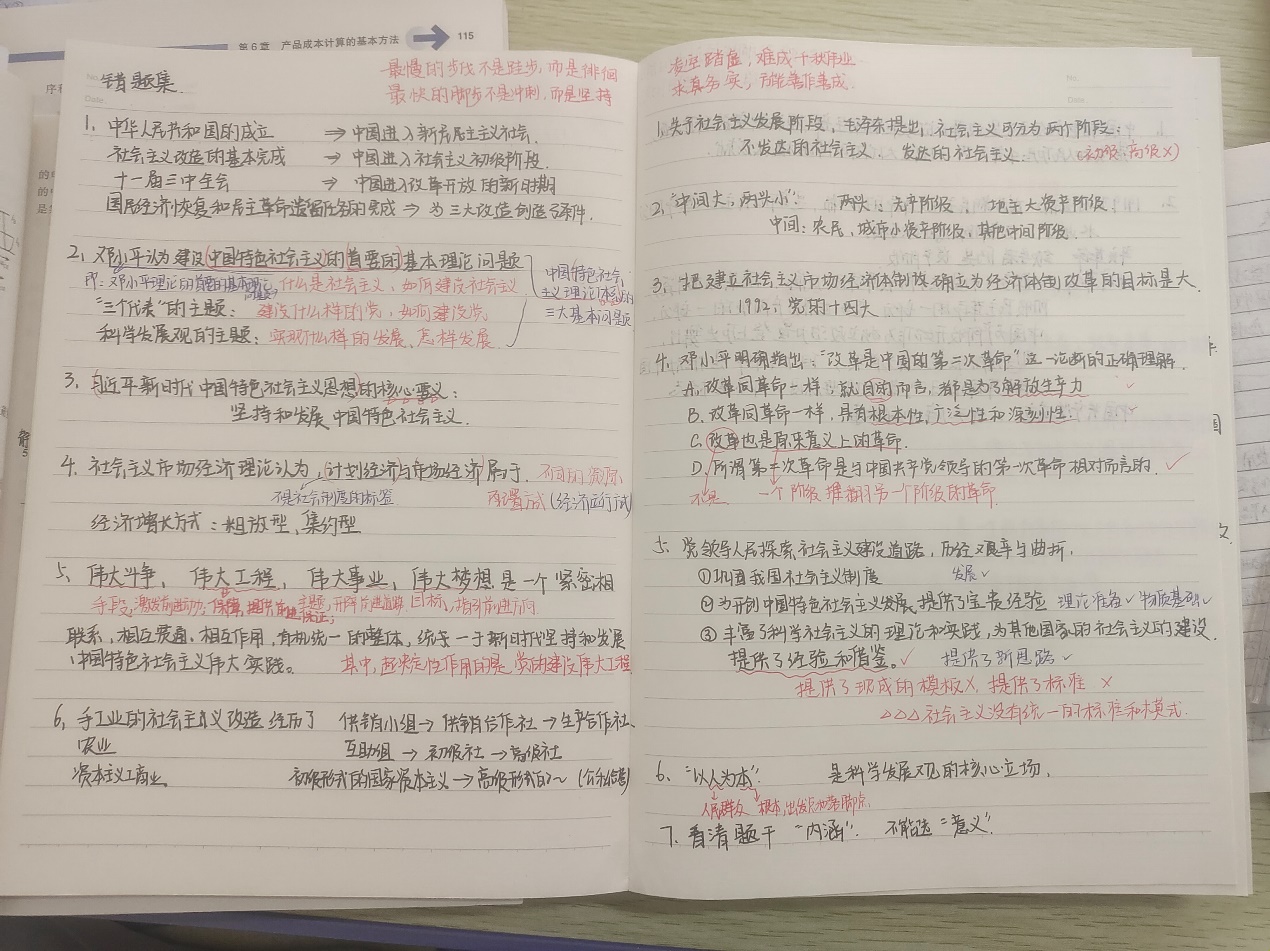 第6章 产品成本计算的基本方法 115
错题集
最慢的步伐不是跬步,而是徘徊
最快的脚步不是冲刺,而是坚持
1、中华人民共和国的成立 ⇒ 中国进入新民主主义社会.
社会主义改造的基本完成 ⇒ 中国进入社会主义初级阶段.
十一届三中全会 ⇒ 中国进入改革开放的新时期
国民经济恢复和民主革命遗留任务的完成 ⇒ 为三大改造创造了条件.
2、邓小平认为建设中国特色社会主义的首要的基本理论问题
即:邓小平理论的首要的基本理论问题 什么是社会主义,如何建设社会主义
"三个代表"的主题: 建设什么样的党,如何建设党
科学发展观的主题:实现什么样的发展、怎样发展
中国特色社会
主义理论体系的
三大基本问题
3、习近平新时代中国特色社会主义思想的核心要义:
坚持和发展中国特色社会主义.
4、社会主义市场经济理论认为,计划经济与市场经济属于. 不同的资源
不是社会制度的标签 配置方式(经济运行方式)
经济增长方式:粗放型、集约型
5、伟大斗争、伟大工程、伟大事业、伟大梦想是一个紧密相
手段,激发前进动力 保障,提供前进保证; 主题,开辟前进道路 目标,指引前进方向
联系,相互贯通、相互作用,有机统一的整体,统一于新时代坚持和发展
中国特色社会主义伟大实践。 其中,起决定性作用的是党的建设伟大工程
6、手工业的社会主义改造经历了 供销小组→供销合作社→生产合作社、
农业 互助组→初级社→高级社
资本主义工商业 初级形式的国家资本主义→高级形式的~(公私合营)
凌空蹈虚,难成千秋伟业
求真务实,方能善作善成.
No.
Date.
1、关于社会主义发展阶段,毛泽东提出,社会主义可分为两个阶段:
不发达的社会主义、发达的社会主义 (初级、高级×)
2、"中间大,两头小": 两头:无产阶级、地主大资产阶级、
中间:农民,城市小资产阶级,其他中间阶级.
3、把建立社会主义市场经济体制确立为经济体制改革的目标是大
1992、党的十四大
4、邓小平明确指出:"改革是中国的第二次革命"这一论断的正确理解.
A.改革同革命一样,就目的而言,都是为了解放生产力 ✓
B、改革同革命一样,具有根本性,广泛性和深刻性. ✓
C、改革也是原来意义上的革命.
D、所谓第二次革命是与中国共产党领导的第一次革命相对而言的. ✓
不是 一个阶级推翻另一个阶级的革命
5、党领导人民探索社会主义建设道路,历经艰辛与曲折,
①巩固我国社会主义制度 发展✓
②为开创中国特色社会主义发展,提供了宝贵经验 理论准备✓物质基础✓
③丰富了科学社会主义的理论和实践,为其他国家的社会主义的建设
提供了经验和借鉴。✓ 提供了新思路✓
提供了现成的模板×、提供了标准 ×
△△△社会主义没有统一的标准和模式.
6、"以人为本": 是科学发展观的核心立场,
人民群众 根本,出发点和落脚点
7、看清题干 "内涵". 不能选"意义".